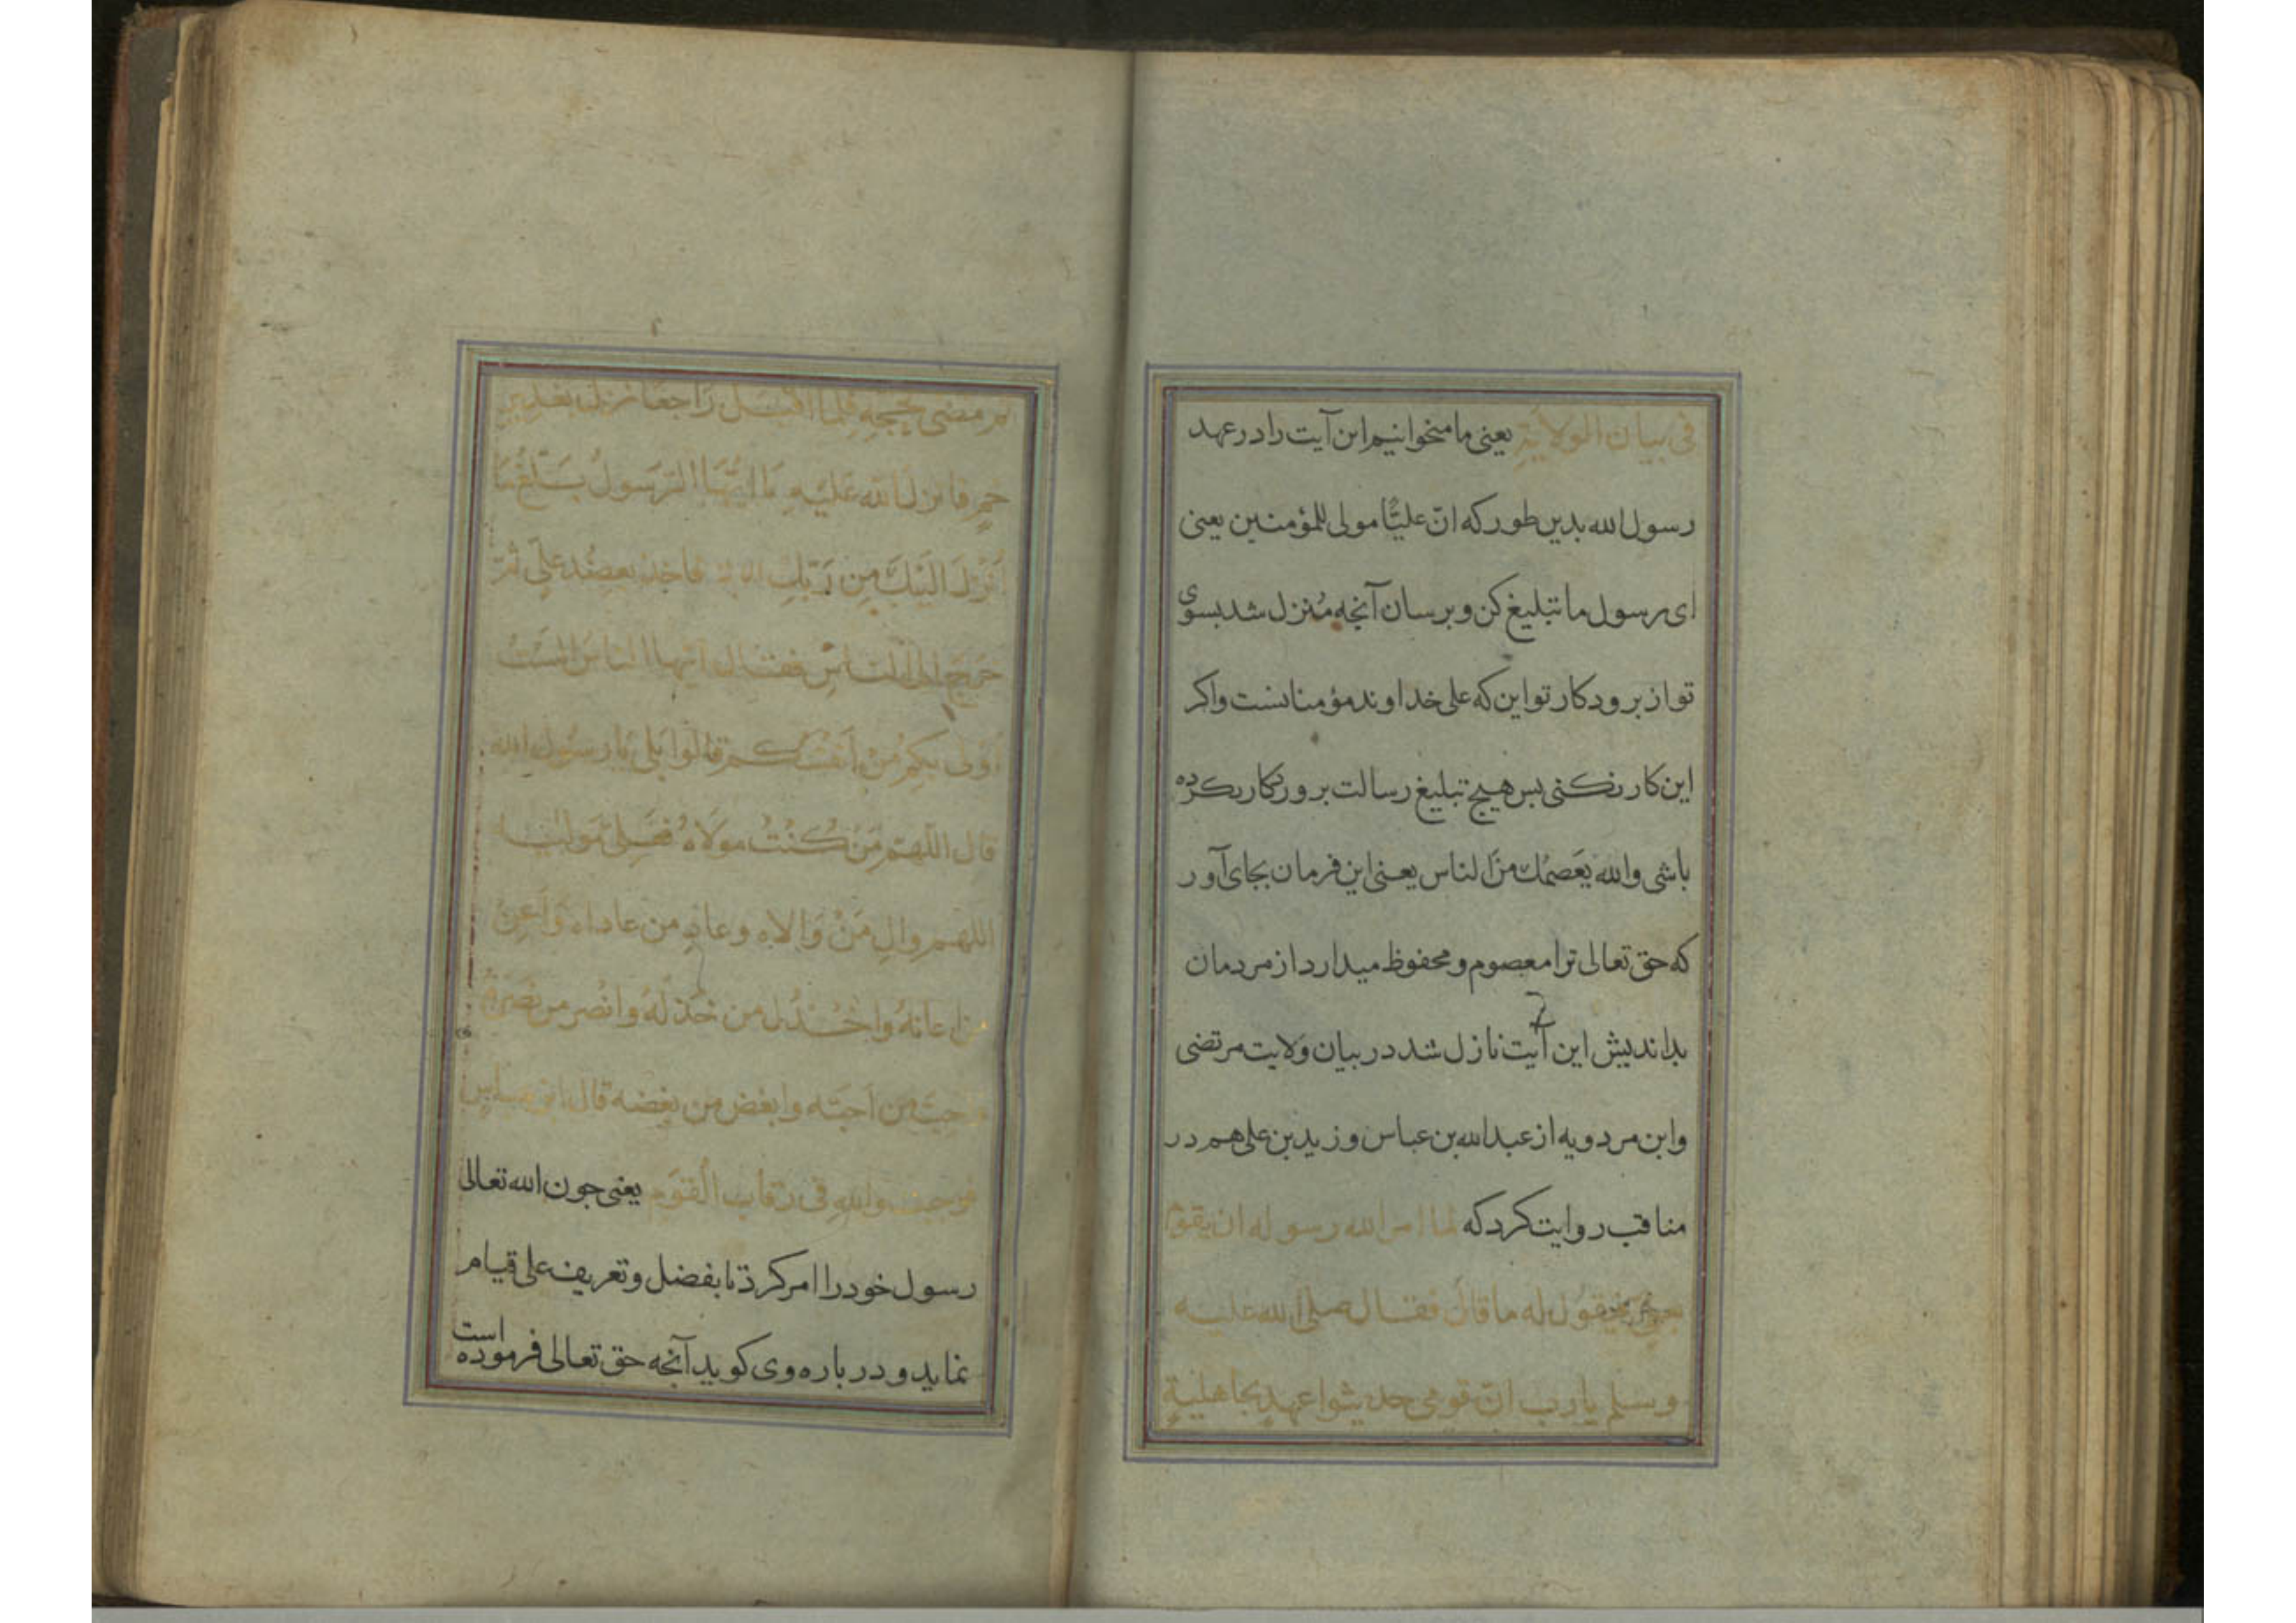 فی بیان المولایة یعنی ما میخوانیم این آیت را در عهد
رسول الله بدین طور که انّ علیّا مولی للمؤمنین یعنی
ای رسول ما تبلیغ کن و برسان آنجه مُنزل شد بسوی
تو از برودکار تو این که علی خداوند مؤمنانست واکر
این کار نکنی بس هیج تبلیغ رسالت برورکار نکرده
باشی والله یَعصمُك منَ الناس یعنی این فرمان بجای آور
که حق تعالی ترا معصوم و محفوظ میدارد از مردمان
بداندیش این آیت نازل شد در بیان وَلایت مرتضی
وابن مردویه از عبدالله بن عباس و زید بن علی هم در
مناقب روایت کرد که لما امر الله رسوله ان یقوم
فیقول له ما قال فقال صلی الله علیه
وسلم یارب انّ قومی حدیثوا عهدٍ بجاهلیةٍ
ثم مضی بحجّهِ فلمّا اقبَل رَاجعًا نزلَ بغدیرِ
خمٍ فانزل الله عَلَیهِ یَا ایُّهَا الرّسَولُ بَلّغ مَا
اُنْزلَ الَیْكَ مِن رَبّكِ الایة فاخذ بعضُد علیّ ثمّ
خَرجَ الی النّاسِ فقال ایّها الناسَ الَسْتُ
اَوْلی بِکم مِنْ اَنفُسکم قالوا بَلی یا رسَول الله
قال اللّهم مَنْ کُنْتُ مولَاهُ فعَلی مَولیٰه
اللّهم والِ مَنْ وَالاه وعادِ من عاداه وَاَعِنْ
من اعانهُ واخْذُل من خَذلَهُ وانْصر من نصَرهُ
واحبّ من اَحبّه وابغض من بغضه قال ابن عباسٍ
واللهِ فی رقاب الْقوَمِ یعنی جون الله تعالی
رسول خود را امر کرد تا بفضل و تعریف علی قیام
نماید و در باره وی کوید آنجه حق تعالی فرموده است